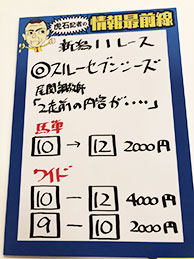 虎石記者の
情報最前線
新潟11レース
◎スルーセブンシーズ
尾関調教師
「2走前の内容が・・・・」
馬単
10 → 12 2000円
ワイド
10 ー 12 4000円
9 ー 10 2000円